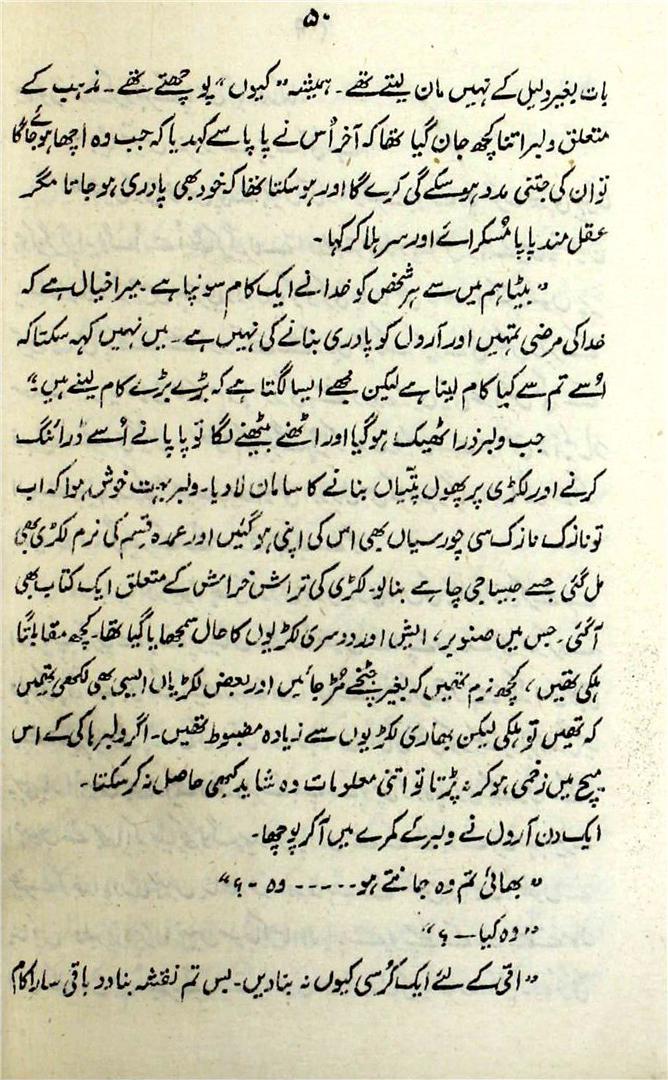 ۵۰
بات بغیر دلیل کے نہیں مان لیتے تھے۔ ہمیشہ "کیوں" پوچھتے تھے۔ مذہب کے
متعلق ولبر اتنا کچھ جان گیا تھا کہ آخر اُس نے پاپا سے کہدیا کہ جب وہ اچھا ہو جائے گا
تو ان کی جتنی مدد ہو سکے گی کرے گا اور ہو سکتا تھا کہ خود بھی پادری ہو جاتا مگر
عقل مند پاپا مُسکرائے اور سر ہلا کر کہا۔
"بیٹا ہم میں سے ہر شخص کو خدا نے ایک کام سونپا ہے۔ میرا خیال ہے کہ
خدا کی مرضی تمہیں اور آرول کو پادری بنانے کی نہیں ہے۔ میں نہیں کہہ سکتا کہ
اُسے تم سے کیا کام لینا ہے لیکن مجھے ایسا لگتا ہے کہ بڑے بڑے کام لینے ہیں"۔
جب ولبر ذرا ٹھیک ہو گیا اور اٹھنے بیٹھنے لگا تو پاپا نے اُسے ڈرائنگ
کرنے اور لکڑی پر پھول پتیّاں بنانے کا سامان لا دیا۔ ولبر بہت خوش ہوا کہ اب
تو نازک نازک سی چورسیاں بھی اس کی اپنی ہو گئیں اور عمدہ قسم کی نرم لکڑی بھی
مل گئی جسے جیسا جی چاہے بنا لو۔ لکڑی کی تراش خراش کے متعلق ایک کتاب بھی
آ گئی۔ جس میں صنوبر، ایش اور دوسری لکڑیوں کا حال سمجھایا گیا تھا۔ کچھ مقابلتاً
ہلکی تھیں، کچھ نرم تھیں کہ بغیر چٹخے مُڑ جائیں اور بعض لکڑیاں ایسی بھی لکھی تھیں
کہ تھیں تو ہلکی لیکن بھاری لکڑیوں سے زیادہ مضبوط تھیں۔ اگر ولبر ہاکی کے اس
میچ میں زخمی ہو کر نہ پڑتا تو اتنی معلومات وہ شاید کبھی حاصل نہ کر سکتا۔
ایک دن آرول نے ولبر کے کمرے میں آ کر پوچھا۔
"بھائی تم وہ جانتے ہو ----- وہ -؟"
"وہ کیا -؟"
"امّی کے لئے ایک کُرسی کیوں نہ بنا دیں۔ بس تم نقشہ بنا دو باقی سارا کام